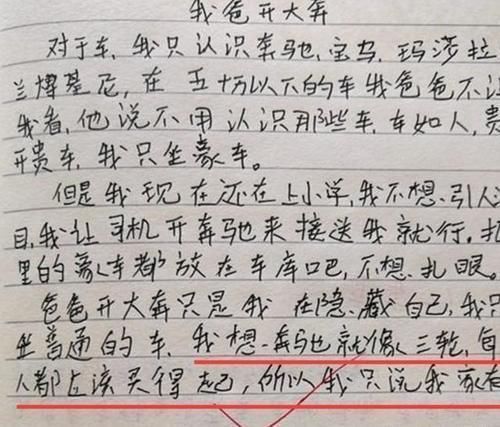 我爸开大奔
对于车,我只认识奔驰,宝马,玛莎拉
兰博基尼,在五十万以下的车我爸爸不让
我看,他说不用认识那些车,车如人,贵
开贵车,我只坐豪车。
但是我现在还在上小学,我不想引人
目,我让司机开奔驰来接送我就行。把
里的豪车都放在车库吧,不想扎眼。
爸爸开大奔只是我在隐藏自己,我只
坐普通的车,我想奔驰就像三轮,每
人都应该买得起,所以我只说我家有